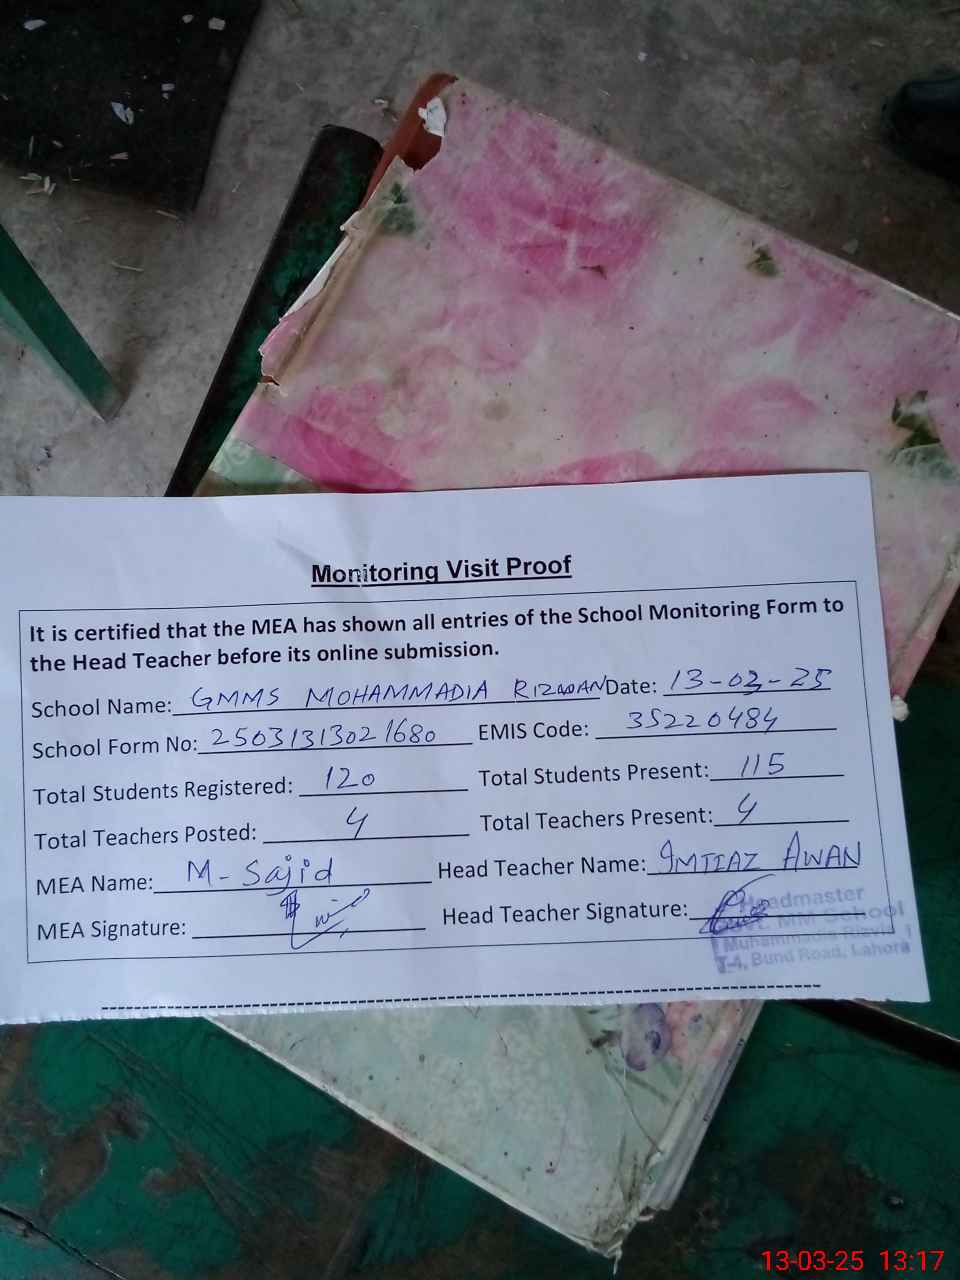 Monitoring Visit Proof
It is certified that the MEA has shown all entries of the School Monitoring Form to
the Head Teacher before its online submission.
School Name: GMMS MOHAMMADIA RIZWAN Date: 13-03-25
School Form No: 25031313021680 EMIS Code: 35220484
Total Students Registered: 120 Total Students Present: 115
Total Teachers Posted: 4 Total Teachers Present: 4
MEA Name: M-Sajid Head Teacher Name: IMTIAZ AWAN
MEA Signature: Head Teacher Signature:
Headmaster
Govt. MM School
Muhammadia Rizvia
T-4, Bund Road, Lahore
13-03-25 13:17